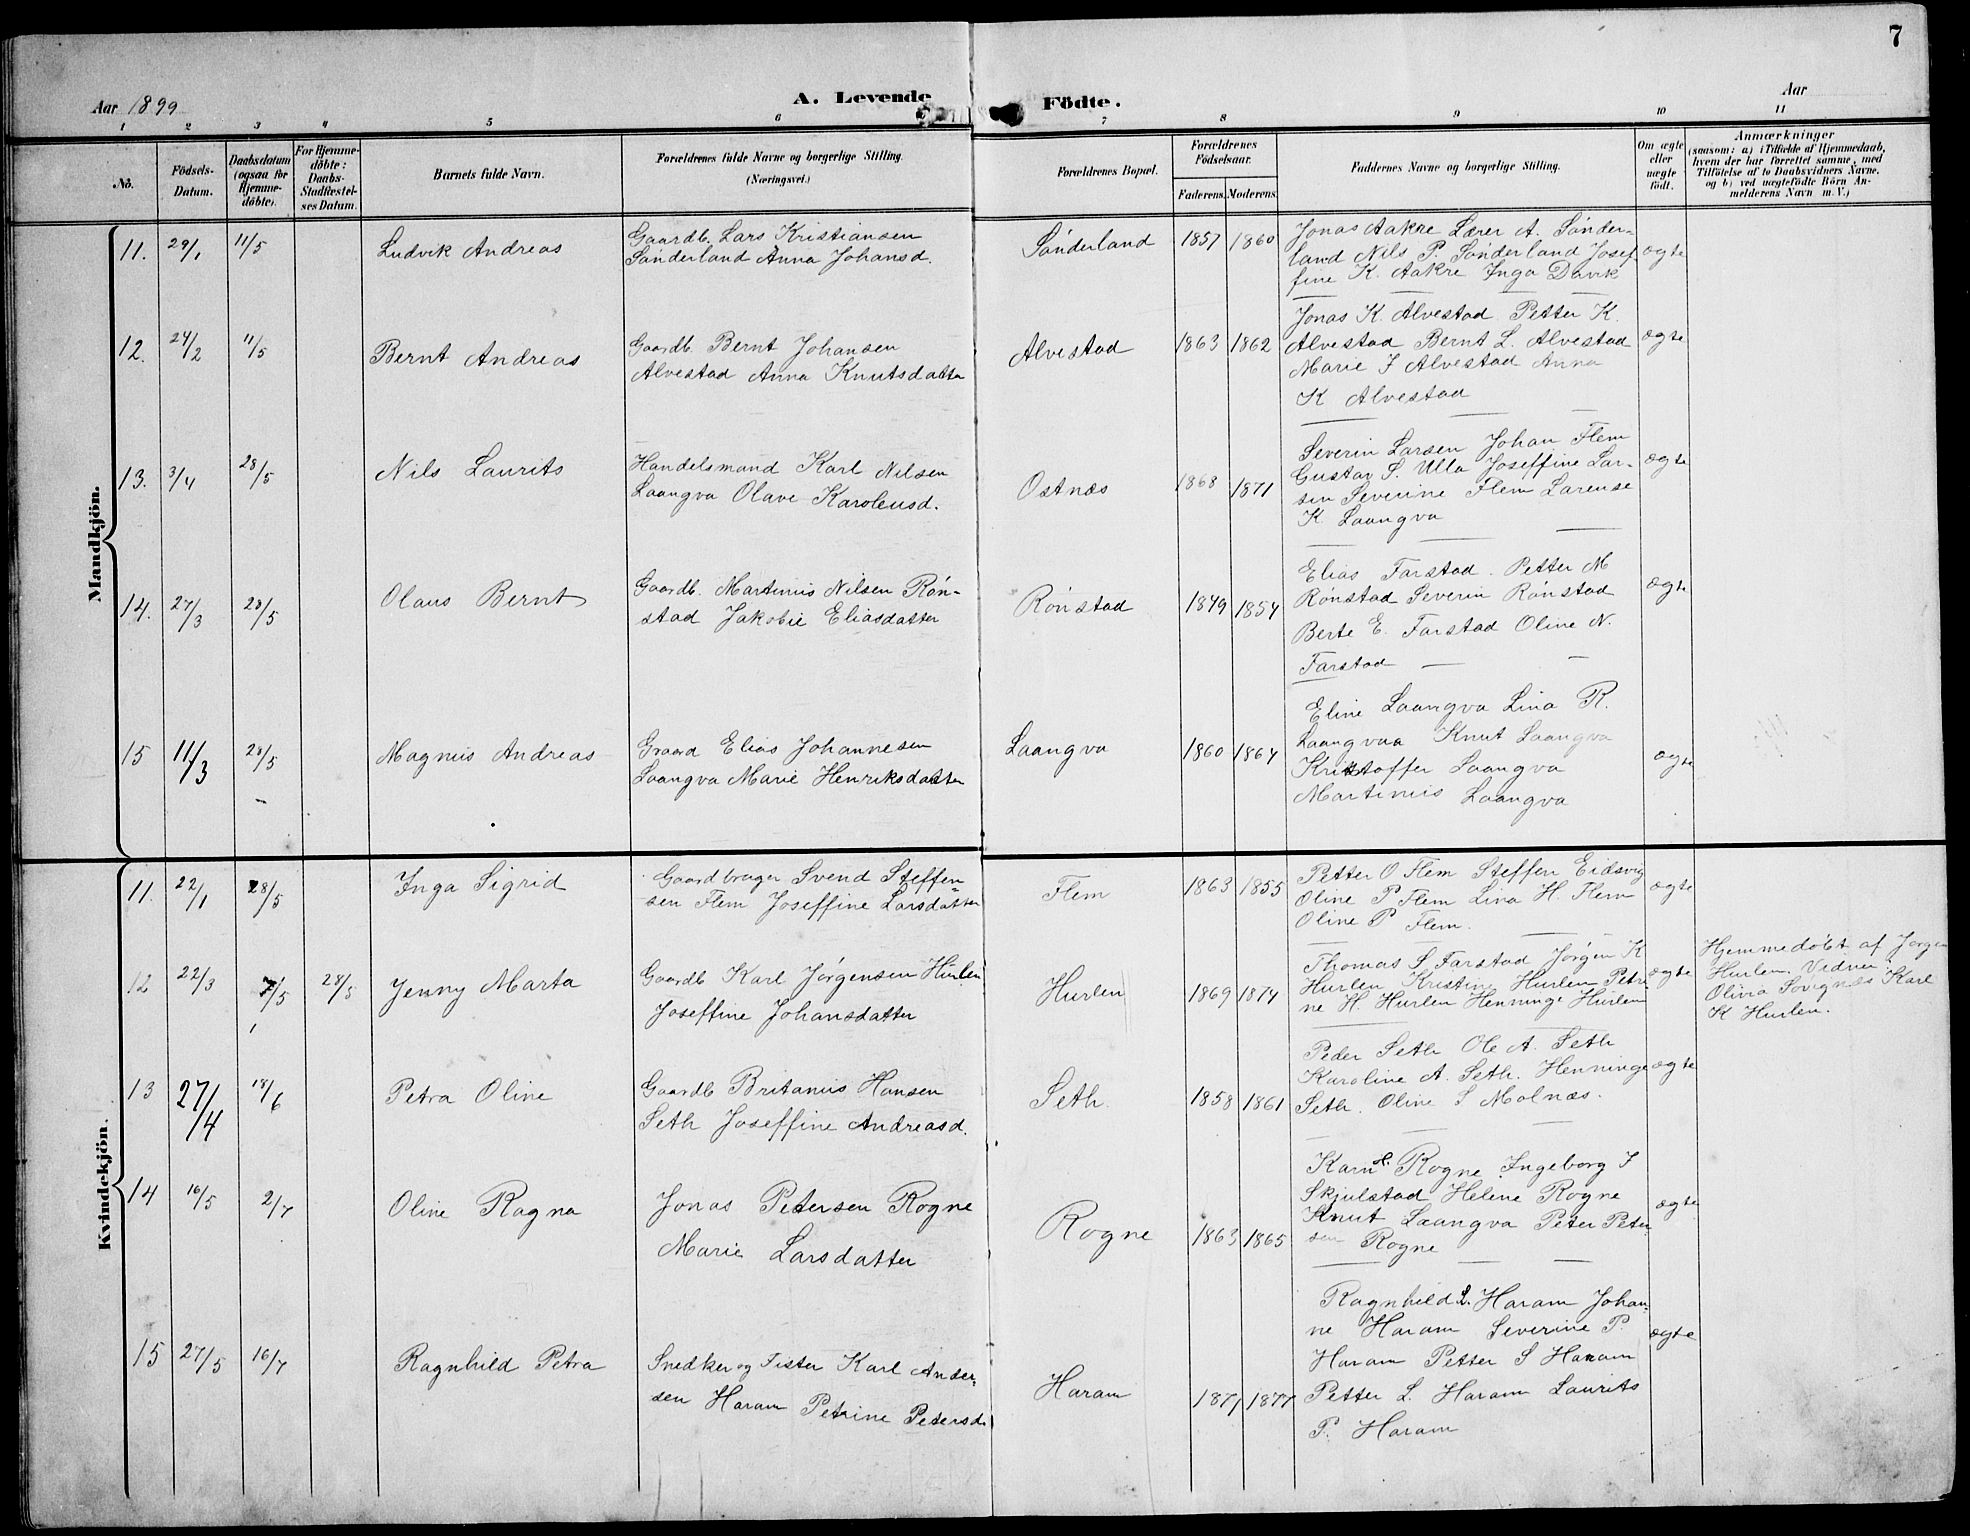 7
Aar 1899
A. Levende Födte.
Aar
1 2 3 4 5 6 7 8 9 10 11
No.
Födsels-Datum.
Daabsdatum (ogsaa for Hjemme-döbte).
For Hjemme-döbte: Daabs-Stadfæstel-ses Datum.
Barnets fulde Navn.
Forældrenes fulde Navne og borgerlige Stilling. (Næringsvei.)
Forældrenes Bopæl.
Forældrenes Födselsaar.
Faderens. Moderens.
Faddernes Navne og borgerlige Stilling.
Om ægte eller uægte födt.
Anmærkninger
(saasom: a) i Tilfælde af Hjemmedaab,
hvem der har forrettet samme, med
Tilföielse af to Daabsvidners Navne,
og b) ved uægtefödte Börn An-
melderens Navn m. V.)
Mandkjön.
11. 29/1 11/5
Ludvik Andreas
Gaardb. Lars Kristiansen
Sønderland Anna Johansd.
Sønderland
1857 1860
Jonas Aakre Lærer A. Sønder-
land Nils P. Sønderland Josef
fine K. Aakre Inga Davik
ægte
12. 24/2 11/5
Bernt Andreas
Gaardb. Bernt Johansen
Alvestad Anna Knutsdatter
Alvestad
1863 1862
Jonas K. Alvestad Petter K.
Alvestad Bernt L. Alvestad
Marie J Alvestad Anna
K Alvestad
ægte
13. 3/4 28/5
Nils Laurits
Handelsmand Karl Nilsen
Laangva Olave Karoleusd.
Ostnæs
1868 1871
Severin Larsen Johan Flem
Gustav S. Ulla Joseffine Lar-
sen Severine Flem Larense
K Laangva
ægte
14. 27/3 28/5
Olaus Bernt
Gaardb. Martinus Nilsen Røn-
stad Jakobie Eliasdatter
Rønstad
1849 1854
Elias Farstad. Petter M
Rønstad Severin Rønstad
Berte E. Farstad Oline N.
Farstad
ægte
15 11/3 28/5
Magnus Andreas
Graard Elias Johannesen
Laangva Marie Henriksdatter
Laangva
1860 1864
Eline Laangva Lina R.
Laangvaa Knut Laangva
Kristoffer Laangva
Martinius Laangva
ægte
Kvindekjön.
11. 22/1 28/5
Inga Sigrid
Gaardbruger Svend Steffen-
sen Flem Joseffine Larsdatter
Flem
1863 1855
Petter O Flem Steffen Eidsvig
Oline P Flem Lina H. Flem
Oline P Flem.
ægte
12 22/3 7/5 28/5
Jenny Marta
Gaardb Karl Jørgensen Hurlen
Joseffine Johansdatter
Hurlen
1869 1874
Thomas S Farstad Jørgen K
Hurlen Kristine Hurlen Petri
ne H. Hurlen Henninge Hurlen
ægte
Hjemmedøbt af Jørgen
Hurlen. Vidner:
Olivia Søvignæs Karl
K Hurlen.
13 27/4 18/6
Petra Oline
Gaardb Britanius Hansen
Seth Joseffine Andreasd.
Seth.
1858 1861
Peder Seth Ole A. Seth
Karoline A. Seth. Henninge
Seth. Oline S Molnæs.
ægte
14 16/5 2/7
Oline Ragna
Jonas Petersen Rogne
Marie Larsdatter
Rogne
1863 1865
Rogne Ingeborg J
Skjulstad Heline Rogne
Knut Laangva Peter Peter
sen Rogne
ægte
15 27/5 16/7
Ragnhild Petra
Snedker og Fisker Karl Ander-
sen Haram Petrine Petersd.
Haram
1871 1877
Ragnhild L. Haram Johan
ne Haram Severine P.
Haram Petter S Haram
Petter L. Haram Laurits
P. Haram
ægte